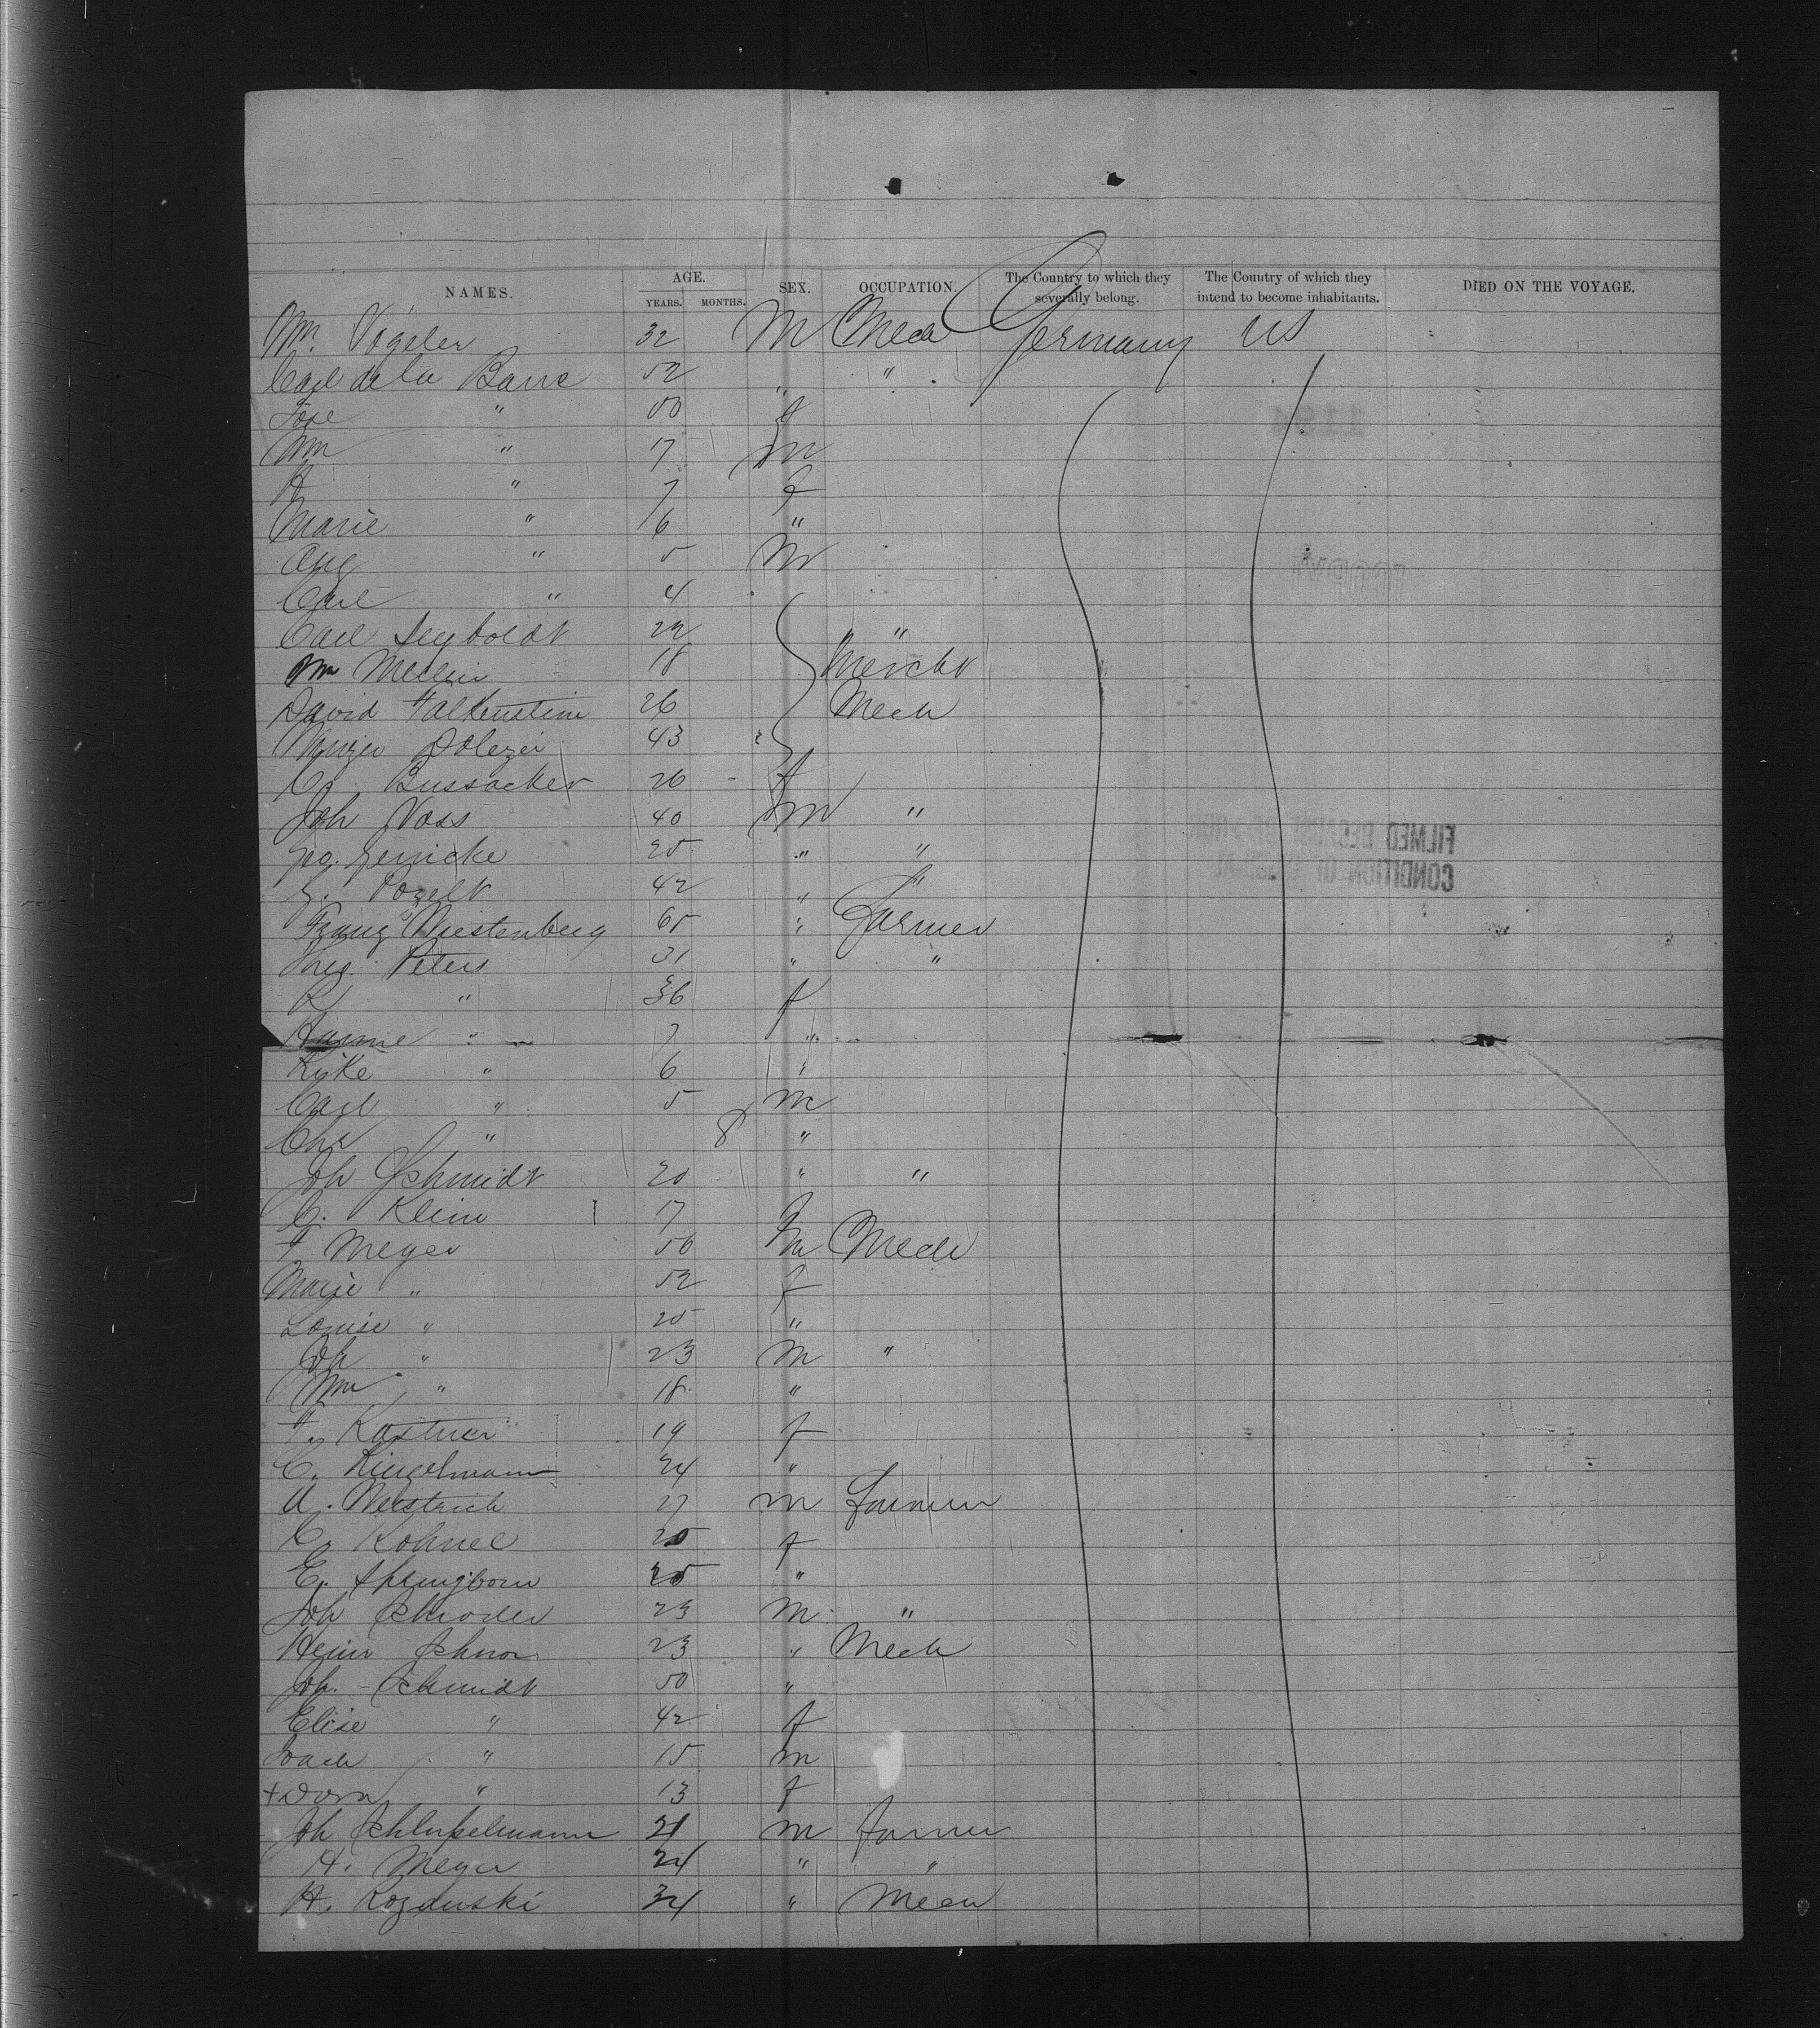 NAMES. AGE. YEARS. MONTHS. SEX. OCCUPATION. The Country to which they severally belong. The Country of which they intend to become inhabitants. DIED ON THE VOYAGE.
Wm. Vogeler 32 M Mech Germany US
Carl de la Barre 52 " "
" 50 f
Wm " 17 m
H " 7 f
Marie " 6 "
Aug " 5 M
Carl " 4
Carl Seyboldt 22 "
Wm Mellin 18 Mercht
David Falkenstein 26 Mech
Dolezei 43
C. Bussacker 26 f
Joh Voss 40 m "
Geo. Jenicke 25 " "
Pozelt 42 " "
Franz Wiestenberg 65 " Farmer
Peters 31 " "
" 36 f
Hanne " 7 "
Rike " 6 "
Carl " 5 m
Chr " 8 "
Joh Schmidt 20 " "
C. Klein 17 f
F. Meyer 50 m Mech
Marie " 52 f
Louise " 25 "
Joh " 23 m "
Wm " 18 "
F. Kastner 19 f
C. Ringelmann 24 "
27 m Farmer
C. Kohnel 25 f
E. Springborn 25 "
Joh Schroder 23 m "
Heinr Schnor 23 " Mech
Joh. Schmidt 50 "
Elise " 42 f
" 15 m
+ Dora " 13 f
Joh 21 m Farmer
H. Meyer 24 " "
H. 34 " Mech
FILMED BECAUSE
CONDITION OF